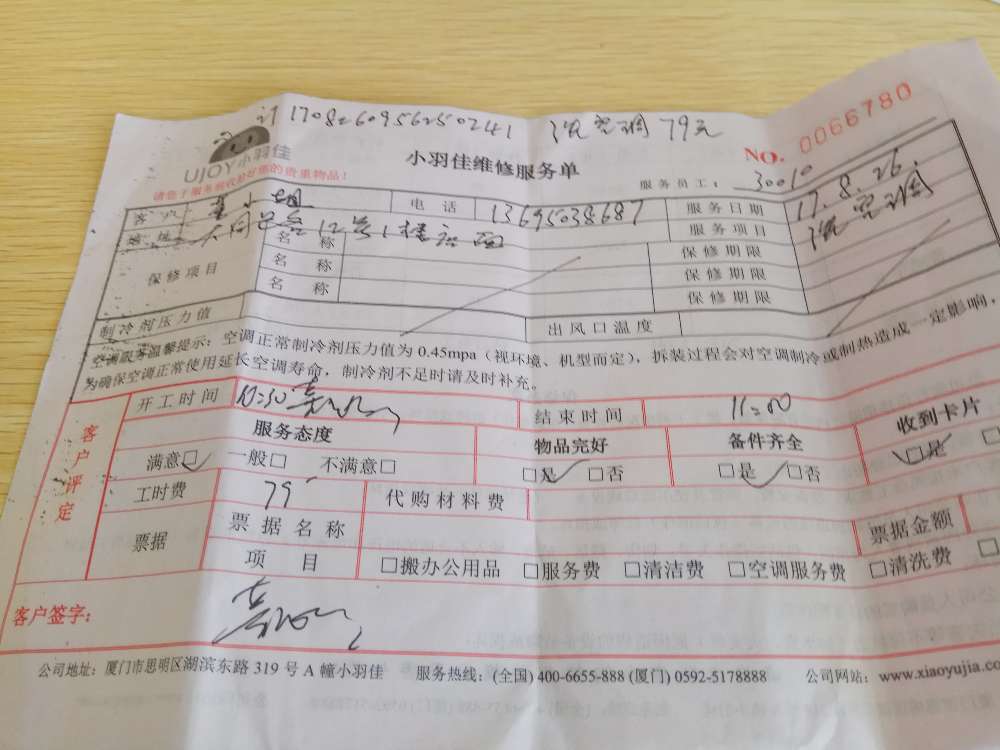 1708260956250241 洗空调 79元
UJOY小羽佳
NO. 0066780
小羽佳维修服务单
请您于服务前收拾好您的贵重物品!
服务员工: 30010
客户 小姐 电话 13695038687 服务日期 17.8.26
地址 12号1楼店面 服务项目 洗空调
保修项目 名称 保修期限
名称 保修期限
名称 保修期限
制冷剂压力值 出风口温度
温馨提示: 空调正常制冷剂压力值为 0.45mpa (视环境、机型而定), 拆装过程会对空调制冷或制热造成一定影响,
为确保空调正常使用延长空调寿命, 制冷剂不足时请及时补充。
客户评定
开工时间 10:30 结束时间 11:00
服务态度 物品完好 备件齐全 收到卡片
满意□ 一般□ 不满意□ □是 □否 □是 □否 □是 □
工时费 79 代购材料费
票据 票据名称 票据金额
项目 □搬办公用品 □服务费 □清洁费 □空调服务费 □清洗费 □
客户签字:
公司地址: 厦门市思明区湖滨东路 319 号 A 幢小羽佳 服务热线: (全国) 400-6655-888 (厦门) 0592-5178888 公司网站: www.xiaoyujia.com